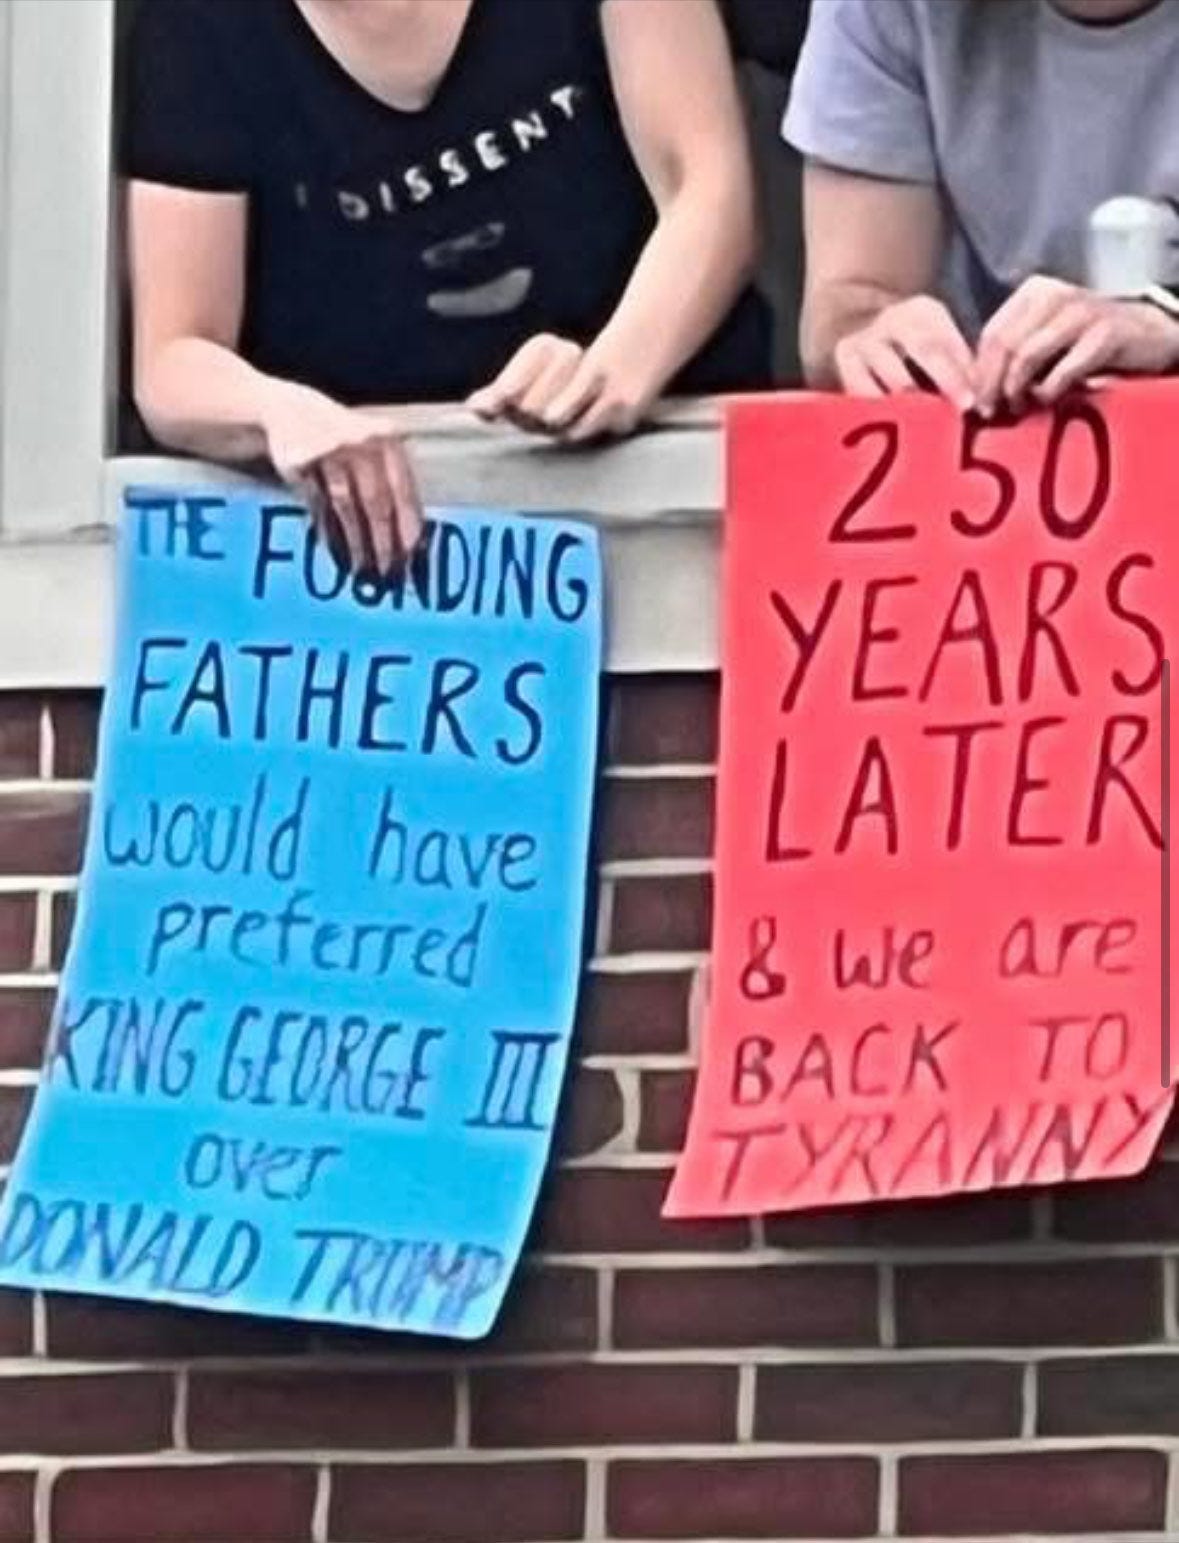 I DISSENT
THE FOUNDING
FATHERS
would have
preferred
KING GEORGE III
over
DONALD TRUMP
250
YEARS
LATER
& we are
BACK TO
TYRANNY